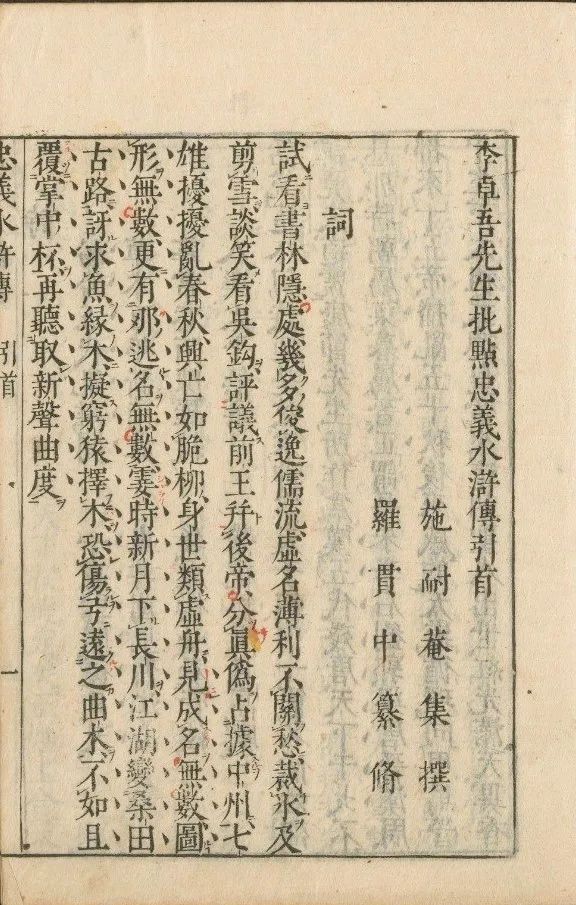 李卓吾先生批點忠義水滸傳引首
施耐菴集撰
羅貫中纂脩
詞
試看書林隱處幾多俊逸儒流虛名薄利不關愁裁氷及
剪雪談笑看吳鈎評議前王幷後帝分眞偽占據中州七
雄擾擾亂春秋興亡如脆柳身世類虛舟見成名無數圖
形無數更有那逃名無數霎時新月下長川江湖變桑田
古路訝求魚緣木擬窮猿擇木恐傷弓遠之曲木不如且
覆掌中杯再聽取新聲曲度
忠義水滸傳 引首 一